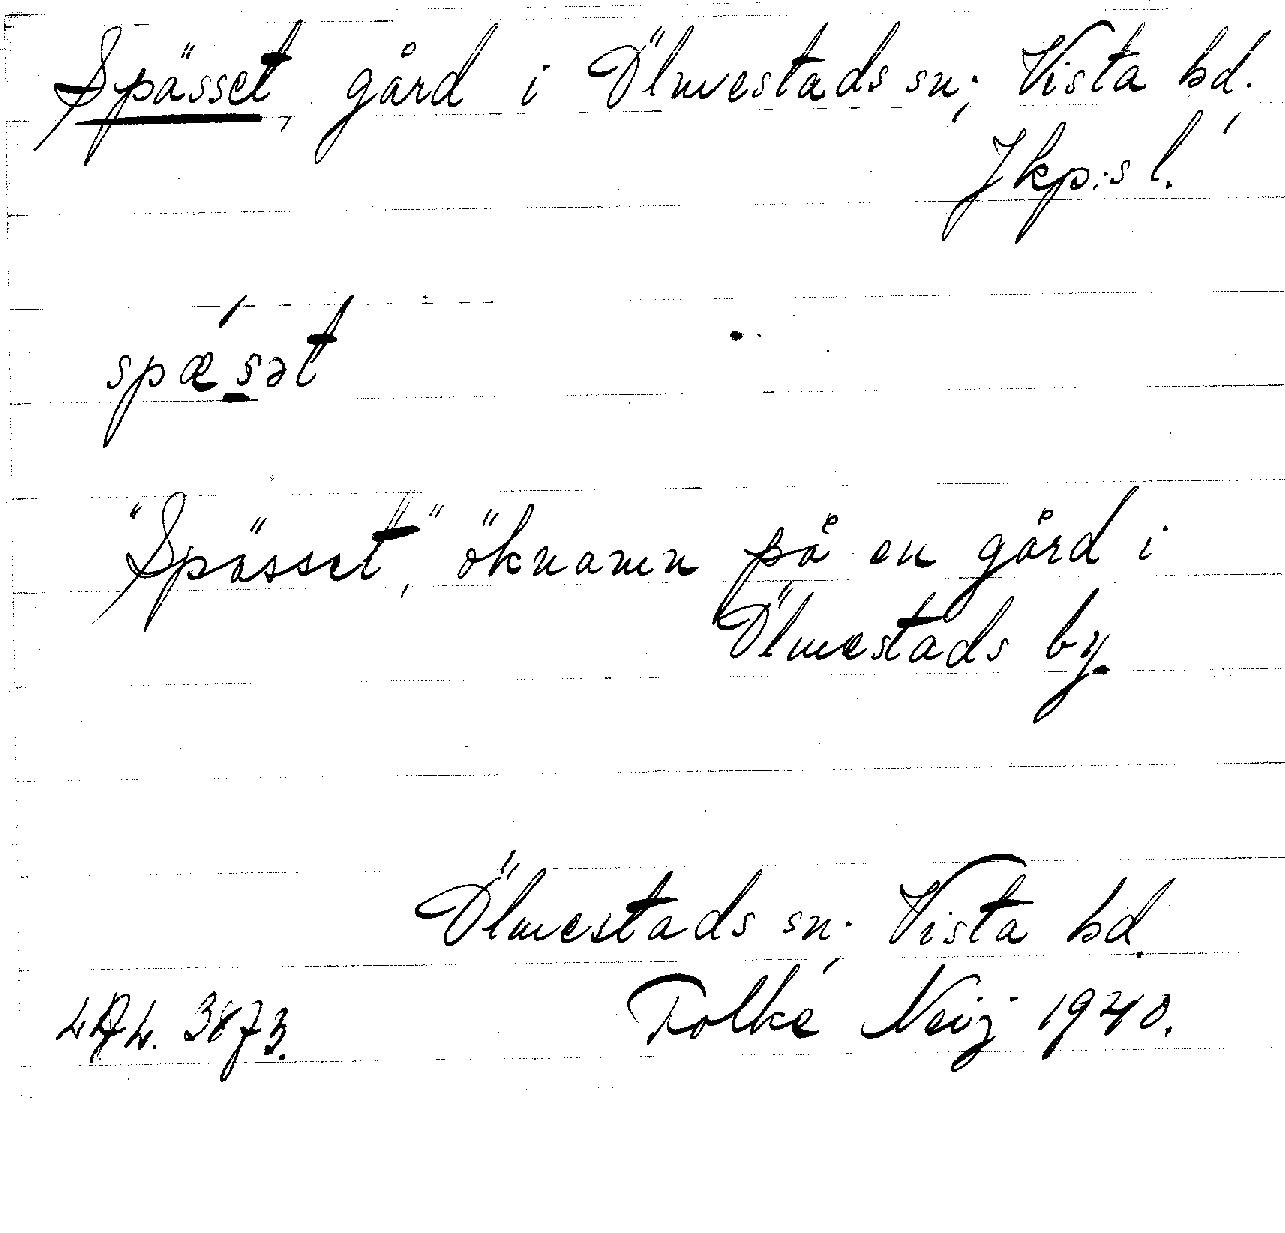 Spässet, gård i Ölmestads sn; Vista hd.,
Jkp:s l.
spǽsət
"Spässet," öknamn på en gård i
Ölmestads by.
Ölmestads sn; Vista hd.
Folke Neij 1940.
3873.